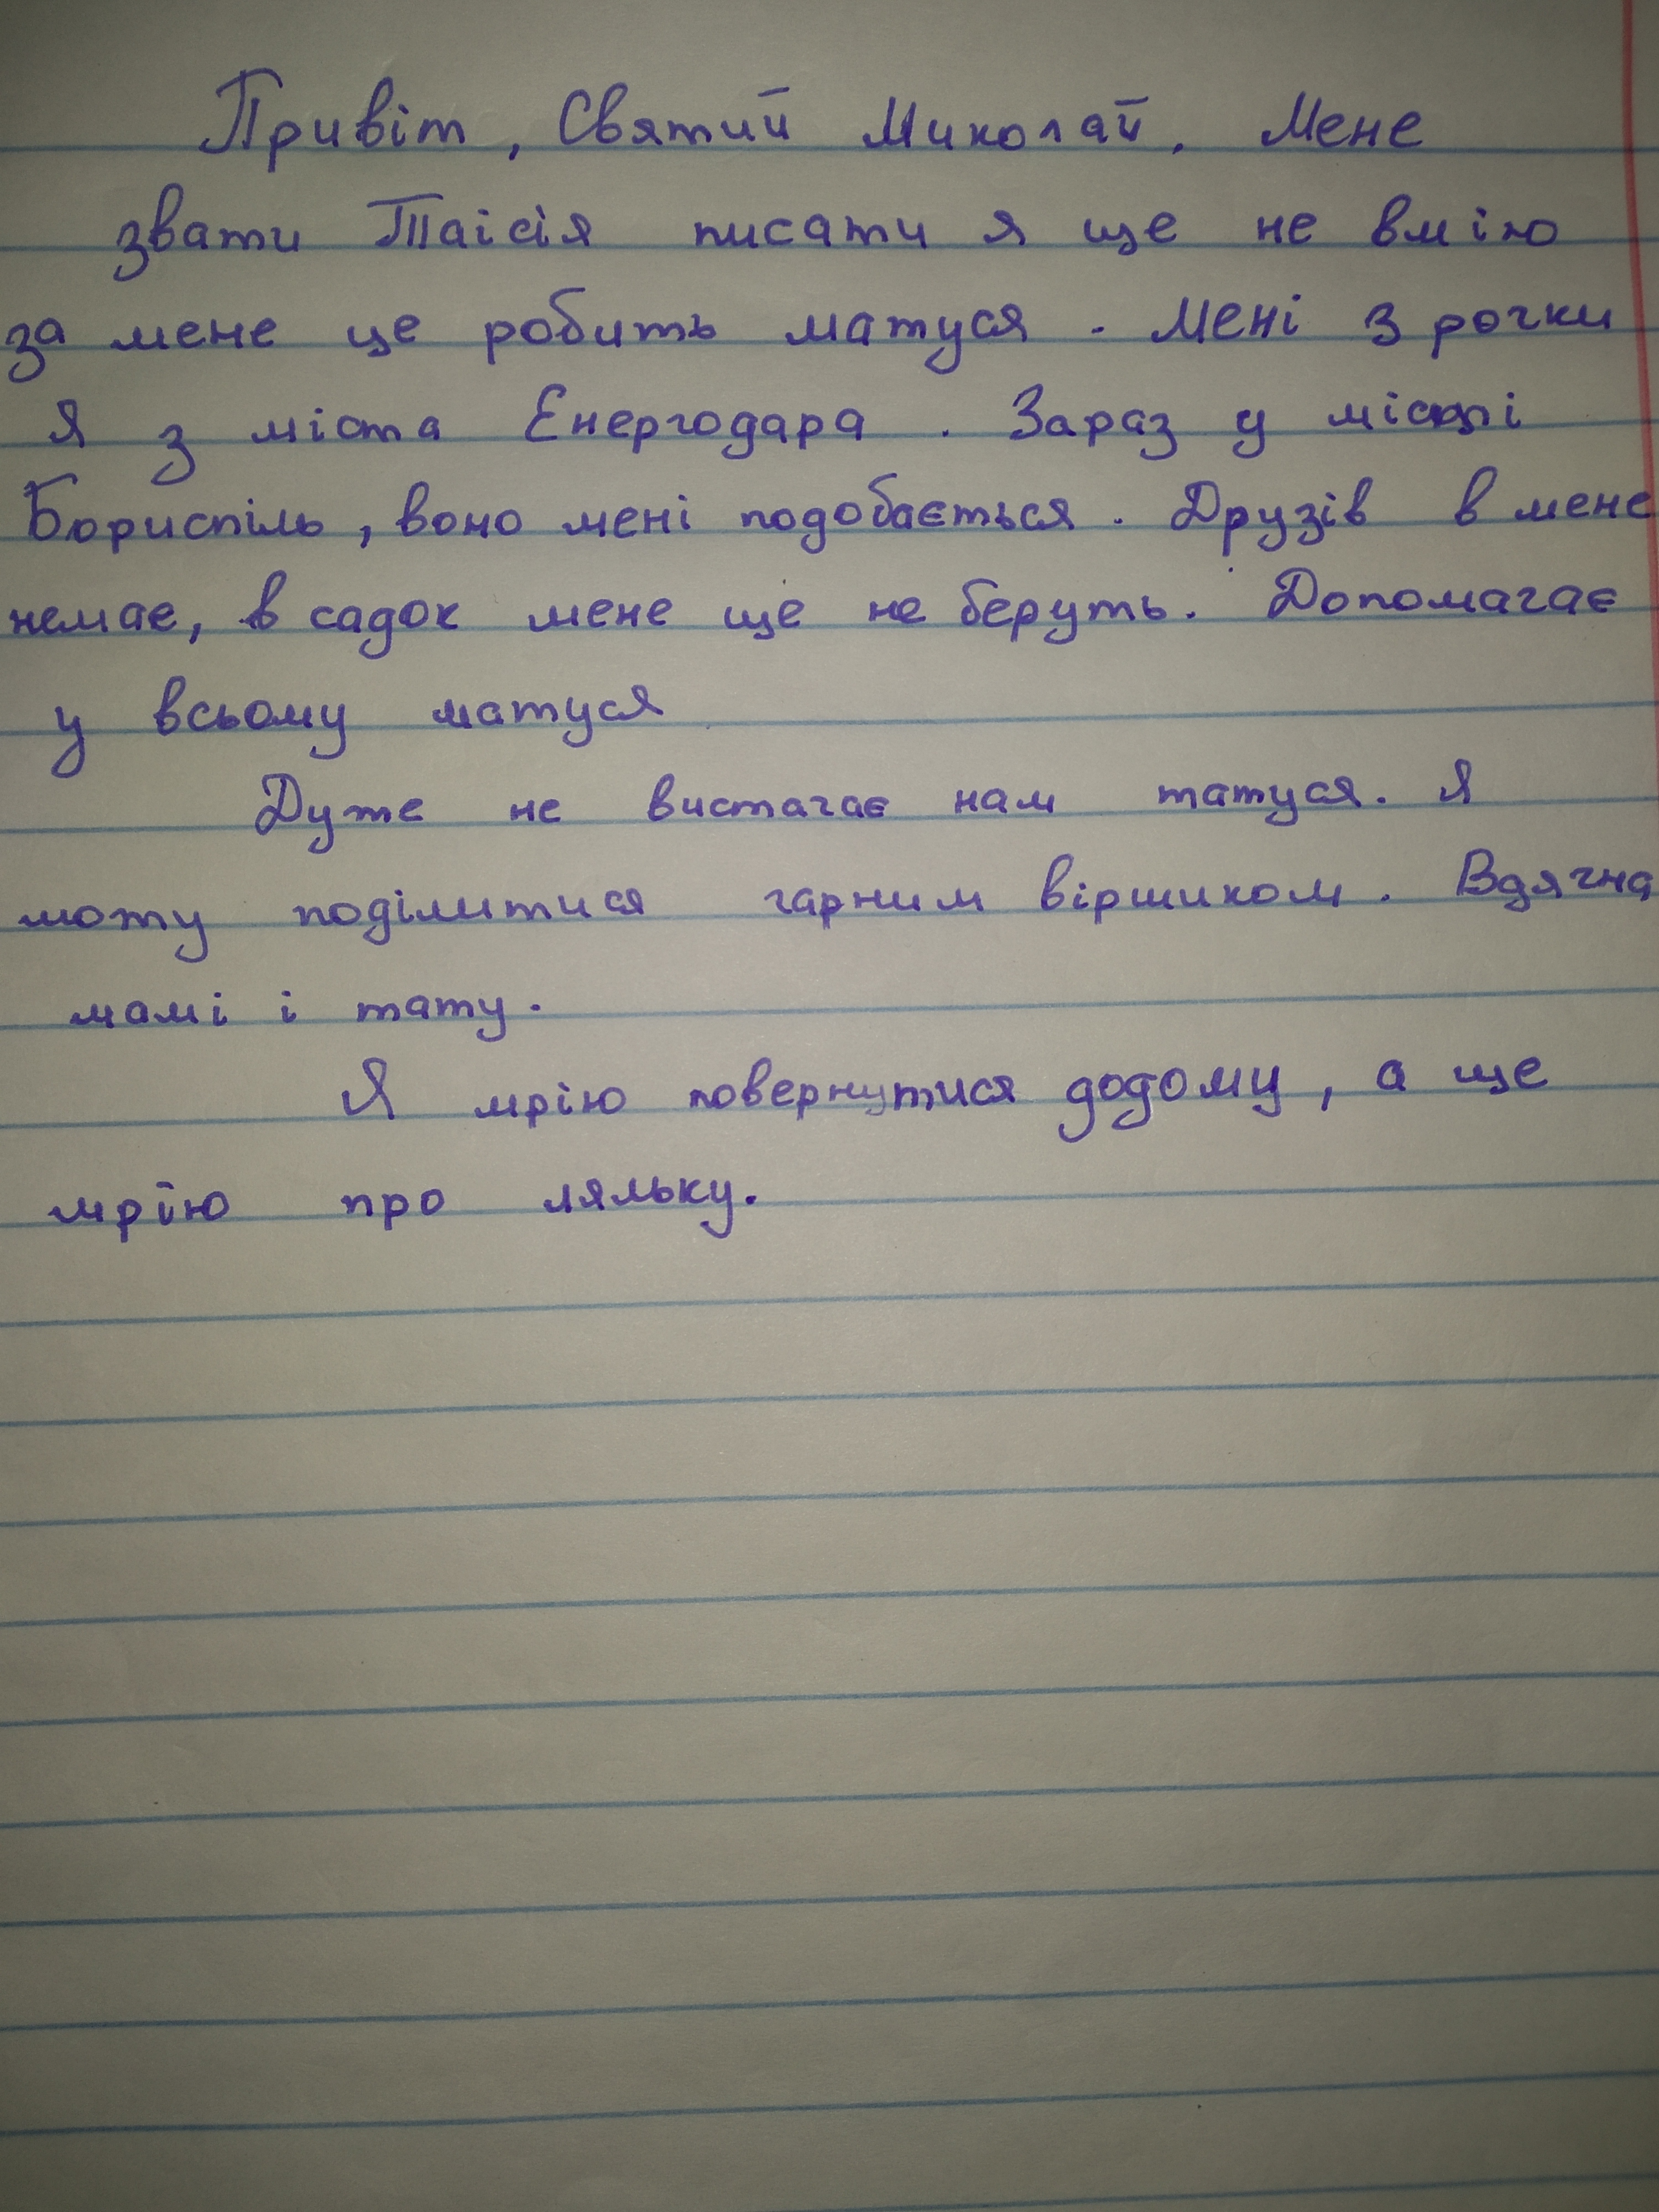 Привіт, Святий Миколай, Мене
звати Таісія писати я ще не вмію
за мене це робить матуся. Мені 3 рочки
Я з міста Енергодара. Зараз у місті
Бориспіль, воно мені подобається. Друзів в мене
немає, в садок мене ще не беруть. Допомагає
у всьому матуся
Дуже не вистачає нам татуся. Я
можу поділитися гарним віршиком. Вдячна
мамі і тату.
Я мрію повернутися додому, а ще
мрію про ляльку.